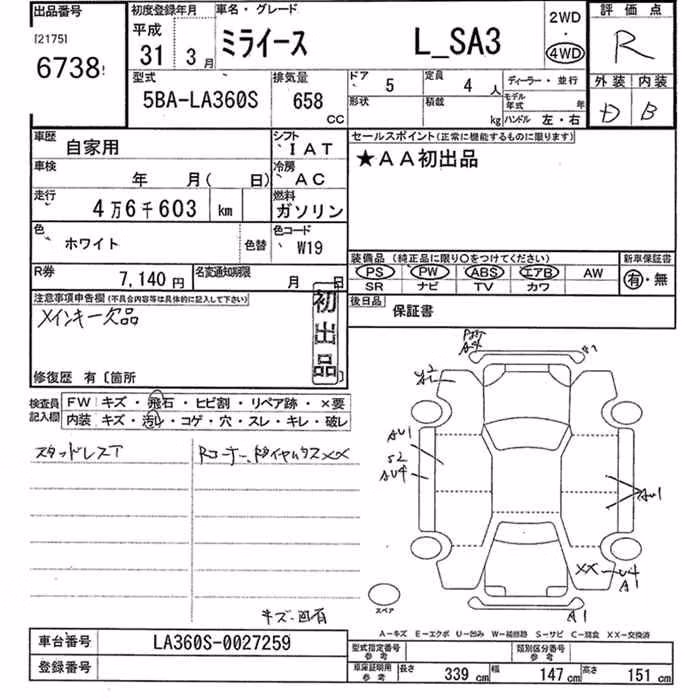 出品番号
[2175]
6738
初度登録年月
平成
31 3月
車名・グレード
ミライース L_SA3
2WD
・
4WD
評価点
R
型式
5BA-LA360S
排気量
658
CC
ドア
5
定員
4人
形状
積載
kg
ディーラー・並行
モデル年式 年
ハンドル 左・右
外装 内装
D B
車歴
自家用
シフト
IAT
車検
年 月( 日)
冷房
AC
走行
4万6千603 km
燃料
ガソリン
色
ホワイト
色替
色コード
W19
R券
7,140円
名変通知期限
月 日
セールスポイント(正常に機能するものに限ります)
★AA初出品
装備品 (純正品に限り○をつけてください)
PS PW ABS エアB AW
SR ナビ TV カワ
新車保証書
有・無
後日品
保証書
注意事項申告欄(不具合内容等は具体的に記入して下さい)
メインキー欠品
初出品
修復歴 有〔箇所
検査員記入欄
FW キズ・飛石・ヒビ割・リペア跡・×要
内装 キズ・汚レ・コゲ・穴・スレ・キレ・破レ
スタッドレスT
Rコーナー、
××
キズ・凹有
A4
AU1
S2
AU4
AU1
XX
U4
A1
A1
スペア
A−キズ E−エクボ U−凹み W−補修跡 S−サビ C−腐食 XX−交換済
車台番号
LA360S-0027259
登録番号
型式指定番号
参考
類別区分番号
参考
車庫証明用
参考
長さ 339 cm 幅 147 cm 高さ 151 cm